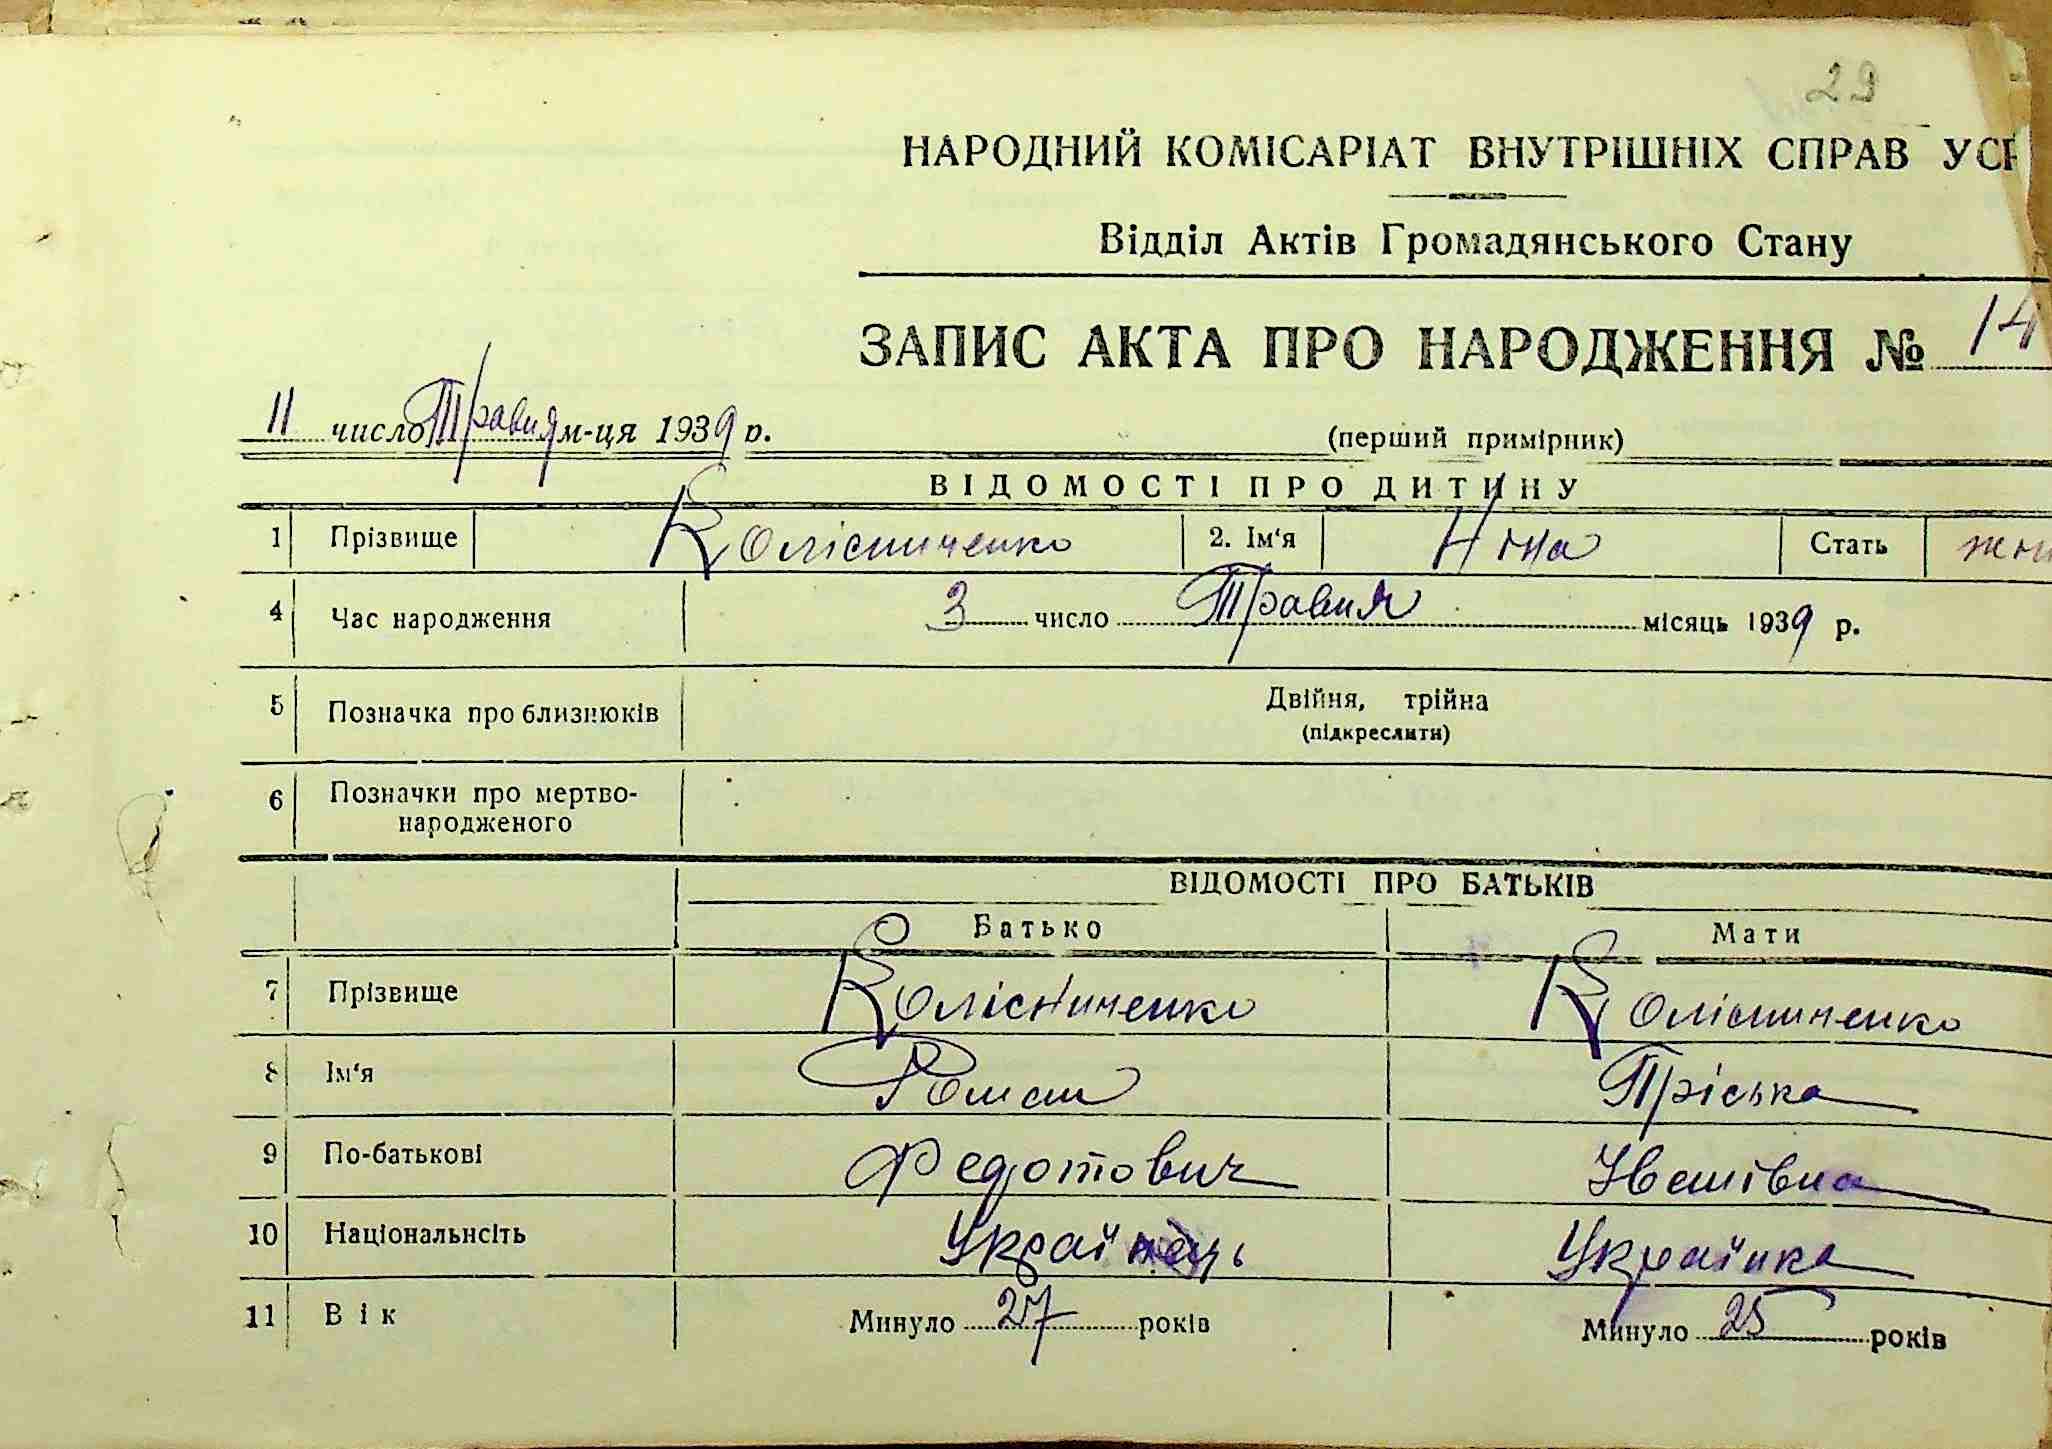 29
НАРОДНИЙ КОМІСАРІАТ ВНУТРІШНІХ СПРАВ УСР
Відділ Актів Громадянського Стану
ЗАПИС АКТА ПРО НАРОДЖЕННЯ № 14
11 число Травня м-ця 1939 р.
(перший примірник)
ВІДОМОСТІ ПРО ДИТИНУ
1 Прізвище Колісниченко 2. Ім'я Ніна Стать
4 Час народження 3 число Травня місяць 1939 р.
5 Позначка про близнюків Двійня, трійна
(підкреслити)
6 Позначки про мертво-
народженого
ВІДОМОСТІ ПРО БАТЬКІВ
Батько Мати
7 Прізвище Колісниченко Колісниченко
8 Ім'я Роман Пріська
9 По-батькові Федотович Іванівна
10 Національнсіть Українець Українка
11 Вік Минуло 27 років Минуло 25 років